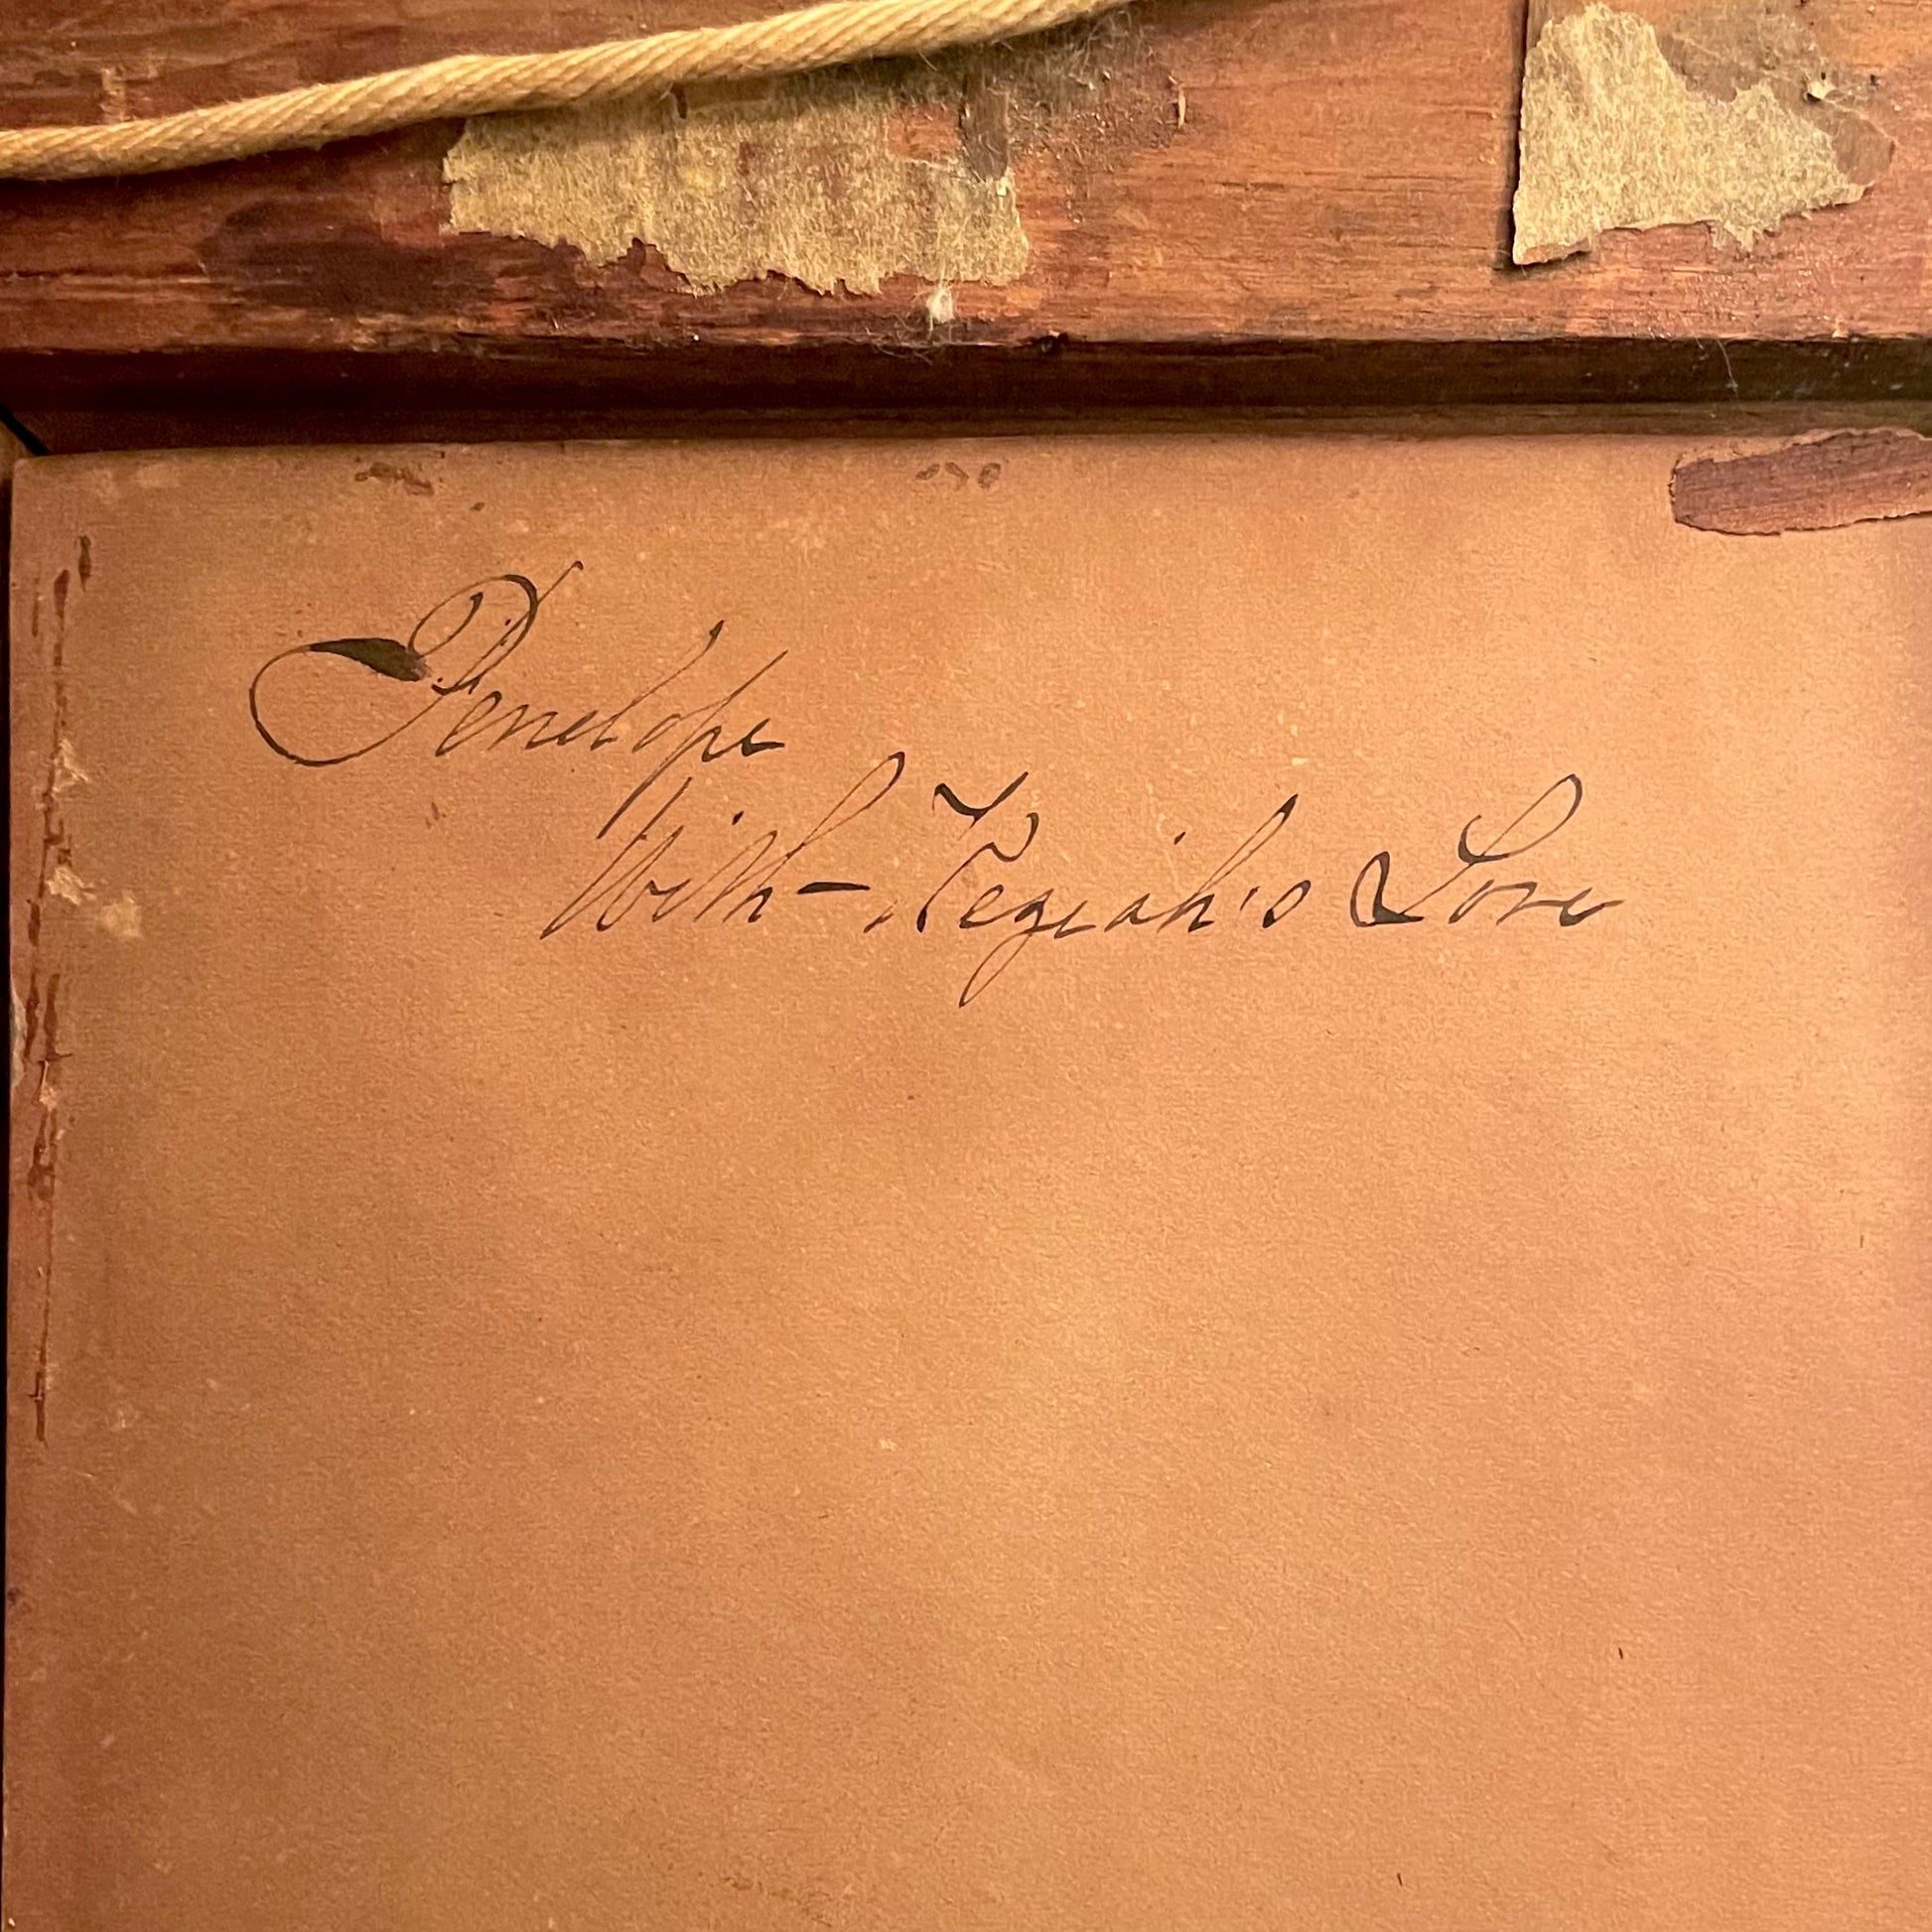 Penelope
With Keziah's Love